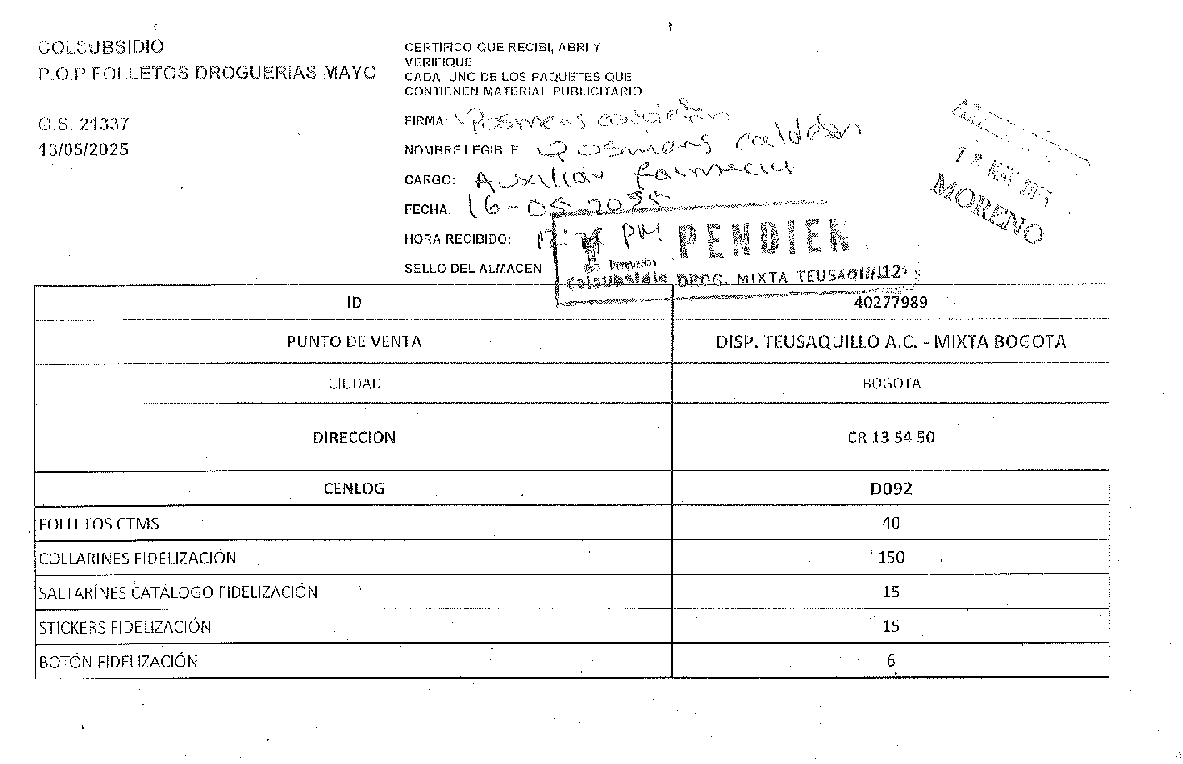 COLSUBSIDIO
P.O.P FOLLETOS DROGUERIAS MAYO
O.S. 21337
13/05/2025
CERTIFICO QUE RECIBI, ABRI Y
VERIFIQUE
CADA UNO DE LOS PAQUETES QUE
CONTIENEN MATERIAL PUBLICITARIO
FIRMA:
NOMBRE LEGIBLE
CARGO: Auxiliar farmacia
FECHA: 16-05-2025
HORA RECIBIDO: PM
SELLO DEL ALMACEN
PENDIEN
Colsubsidio DROG. MIXTA TEUSAQUILL
12
MORENO
ID 40277989
PUNTO DE VENTA DISP. TEUSAQUILLO A.C. - MIXTA BOGOTA
CIUDAD BOGOTA
DIRECCION CR 13 54 90
CENLOG D092
FOLLETOS CTMS 40
COLLARINES FIDELIZACIÓN 150
SALTARINES CATÁLOGO FIDELIZACIÓN 15
STICKERS FIDELIZACIÓN 15
BOTÓN FIDELIZACIÓN 6